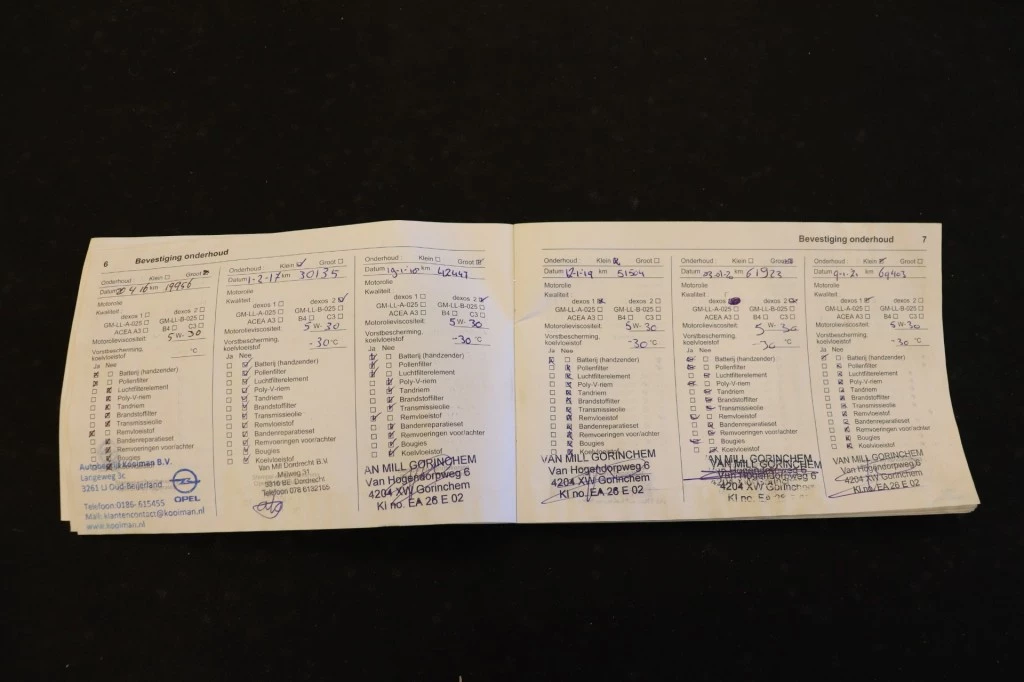 6 Bevestiging onderhoud
Onderhoud : Klein Groot
Datum km 19956
Motorolie
Kwaliteit :
dexos 1 dexos 2
GM-LL-A-025 GM-LL-B-025
ACEA A3 B4 C3
Motorolieviscositeit: 5 W- 30
Vorstbescherming,
koelvloeistof °C
Ja Nee
Batterij (handzender)
Pollenfilter
Luchtfilterelement
Poly-V-riem
Tandriem
Brandstoffilter
Transmissieolie
Remvloeistof
Bandenreparatieset
Remvoeringen voor/achter
Bougies
Kooiman B.V.
Langeweg 3c
3261 LJ Oud-Beijerland
OPEL
Telefoon 0186- 615455
Mail: klantencontact@kooiman.nl
www.kooiman.nl
Onderhoud : Klein Groot
Datum 1-2-17 km 30135
Motorolie
Kwaliteit :
dexos 1 dexos 2
GM-LL-A-025 GM-LL-B-025
ACEA A3 B4 C3
Motorolieviscositeit: 5 W- 30
Vorstbescherming,
koelvloeistof -30 °C
Ja Nee
Batterij (handzender)
Pollenfilter
Luchtfilterelement
Poly-V-riem
Tandriem
Brandstoffilter
Transmissieolie
Remvloeistof
Bandenreparatieset
Remvoeringen voor/achter
Bougies
Koelvloeistof
Van Mill Dordrecht B.V.
Mijlweg 31
3316 BE Dordrecht
Telefoon 078 6132165
Onderhoud : Klein Groot
Datum km 42447
Motorolie
Kwaliteit :
dexos 1 dexos 2
GM-LL-A-025 GM-LL-B-025
ACEA A3 B4 C3
Motorolieviscositeit: 5 W- 30
Vorstbescherming,
koelvloeistof -30 °C
Ja Nee
Batterij (handzender)
Pollenfilter
Luchtfilterelement
Poly-V-riem
Tandriem
Brandstoffilter
Transmissieolie
Remvloeistof
Bandenreparatieset
Remvoeringen voor/achter
Bougies
Koelvloeistof
AN MILL GORINCHEM
Van Hogendorpweg 6
4204 XW Gorinchem
KI no. EA 26 E 02
Bevestiging onderhoud 7
Onderhoud : Klein Groot
Datum km 51504
Motorolie
Kwaliteit :
dexos 1 dexos 2
GM-LL-A-025 GM-LL-B-025
ACEA A3 B4 C3
Motorolieviscositeit: 5 W- 30
Vorstbescherming,
koelvloeistof -30 °C
Ja Nee
Batterij (handzender)
Pollenfilter
Luchtfilterelement
Poly-V-riem
Tandriem
Brandstoffilter
Transmissieolie
Remvloeistof
Bandenreparatieset
Remvoeringen voor/achter
Bougies
Koelvloeistof
VAN MILL GORINCHEM
Van Hogendorpweg 6
4204 XW Gorinchem
KI no. EA 26 E 02
Onderhoud : Klein Groot
Datum km 61923
Motorolie
Kwaliteit :
dexos 1 dexos 2
GM-LL-A-025 GM-LL-B-025
ACEA A3 B4 C3
Motorolieviscositeit: 5 W- 30
Vorstbescherming,
koelvloeistof -30 °C
Ja Nee
Batterij (handzender)
Pollenfilter
Luchtfilterelement
Poly-V-riem
Tandriem
Brandstoffilter
Transmissieolie
Remvloeistof
Bandenreparatieset
Remvoeringen voor/achter
Bougies
Koelvloeistof
VAN MILL GORINCHEM
Van Hogendorpweg 6
4204 XW Gorinchem
KI no. EA 26 E 02
Onderhoud : Klein Groot
Datum km 69403
Motorolie
Kwaliteit :
dexos 1 dexos 2
GM-LL-A-025 GM-LL-B-025
ACEA A3 B4 C3
Motorolieviscositeit: 5 W- 30
Vorstbescherming,
koelvloeistof -30 °C
Ja Nee
Batterij (handzender)
Pollenfilter
Luchtfilterelement
Poly-V-riem
Tandriem
Brandstoffilter
Transmissieolie
Remvloeistof
Bandenreparatieset
Remvoeringen voor/achter
Bougies
Koelvloeistof
VAN MILL GORINCHEM
Van Hogendorpweg 6
4204 XW Gorinchem
KI no. EA 26 E 02